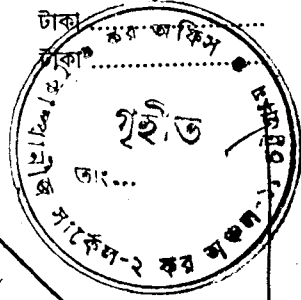 টাকা....................
টাকা....................
কর অফিস
গৃহীত
তাং...
সার্কেল-২ কর অঞ্চল-